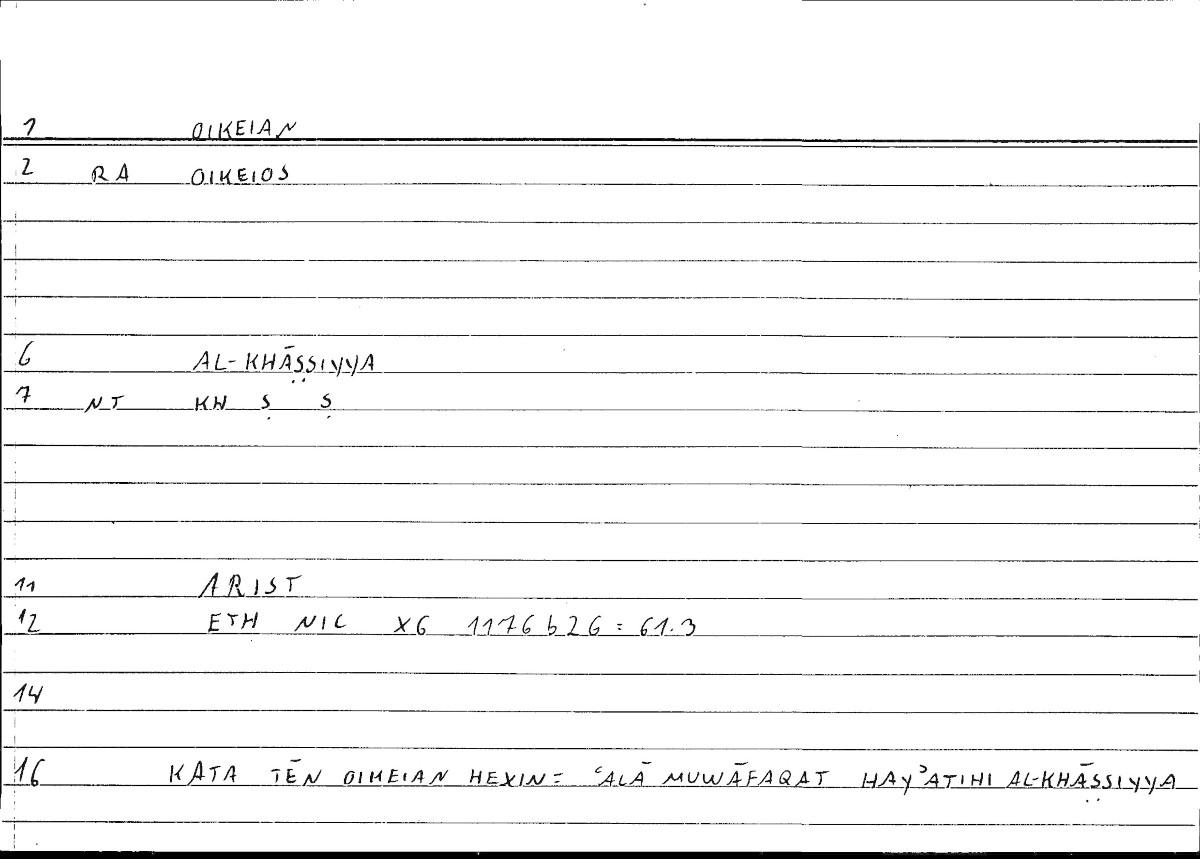 1 OIKEIAN
2 RA OIKEIOS
6 AL-KHĀṢṢIYYA
7 NT KH Ṣ Ṣ
11 ARIST
12 ETH NIC X6 1176 b 26 = 61.3
14
16 KATA TĒN OIKEIAN HEXIN = ʿALĀ MUWĀFAQAT HAYʾATIHI AL-KHĀṢṢIYYA